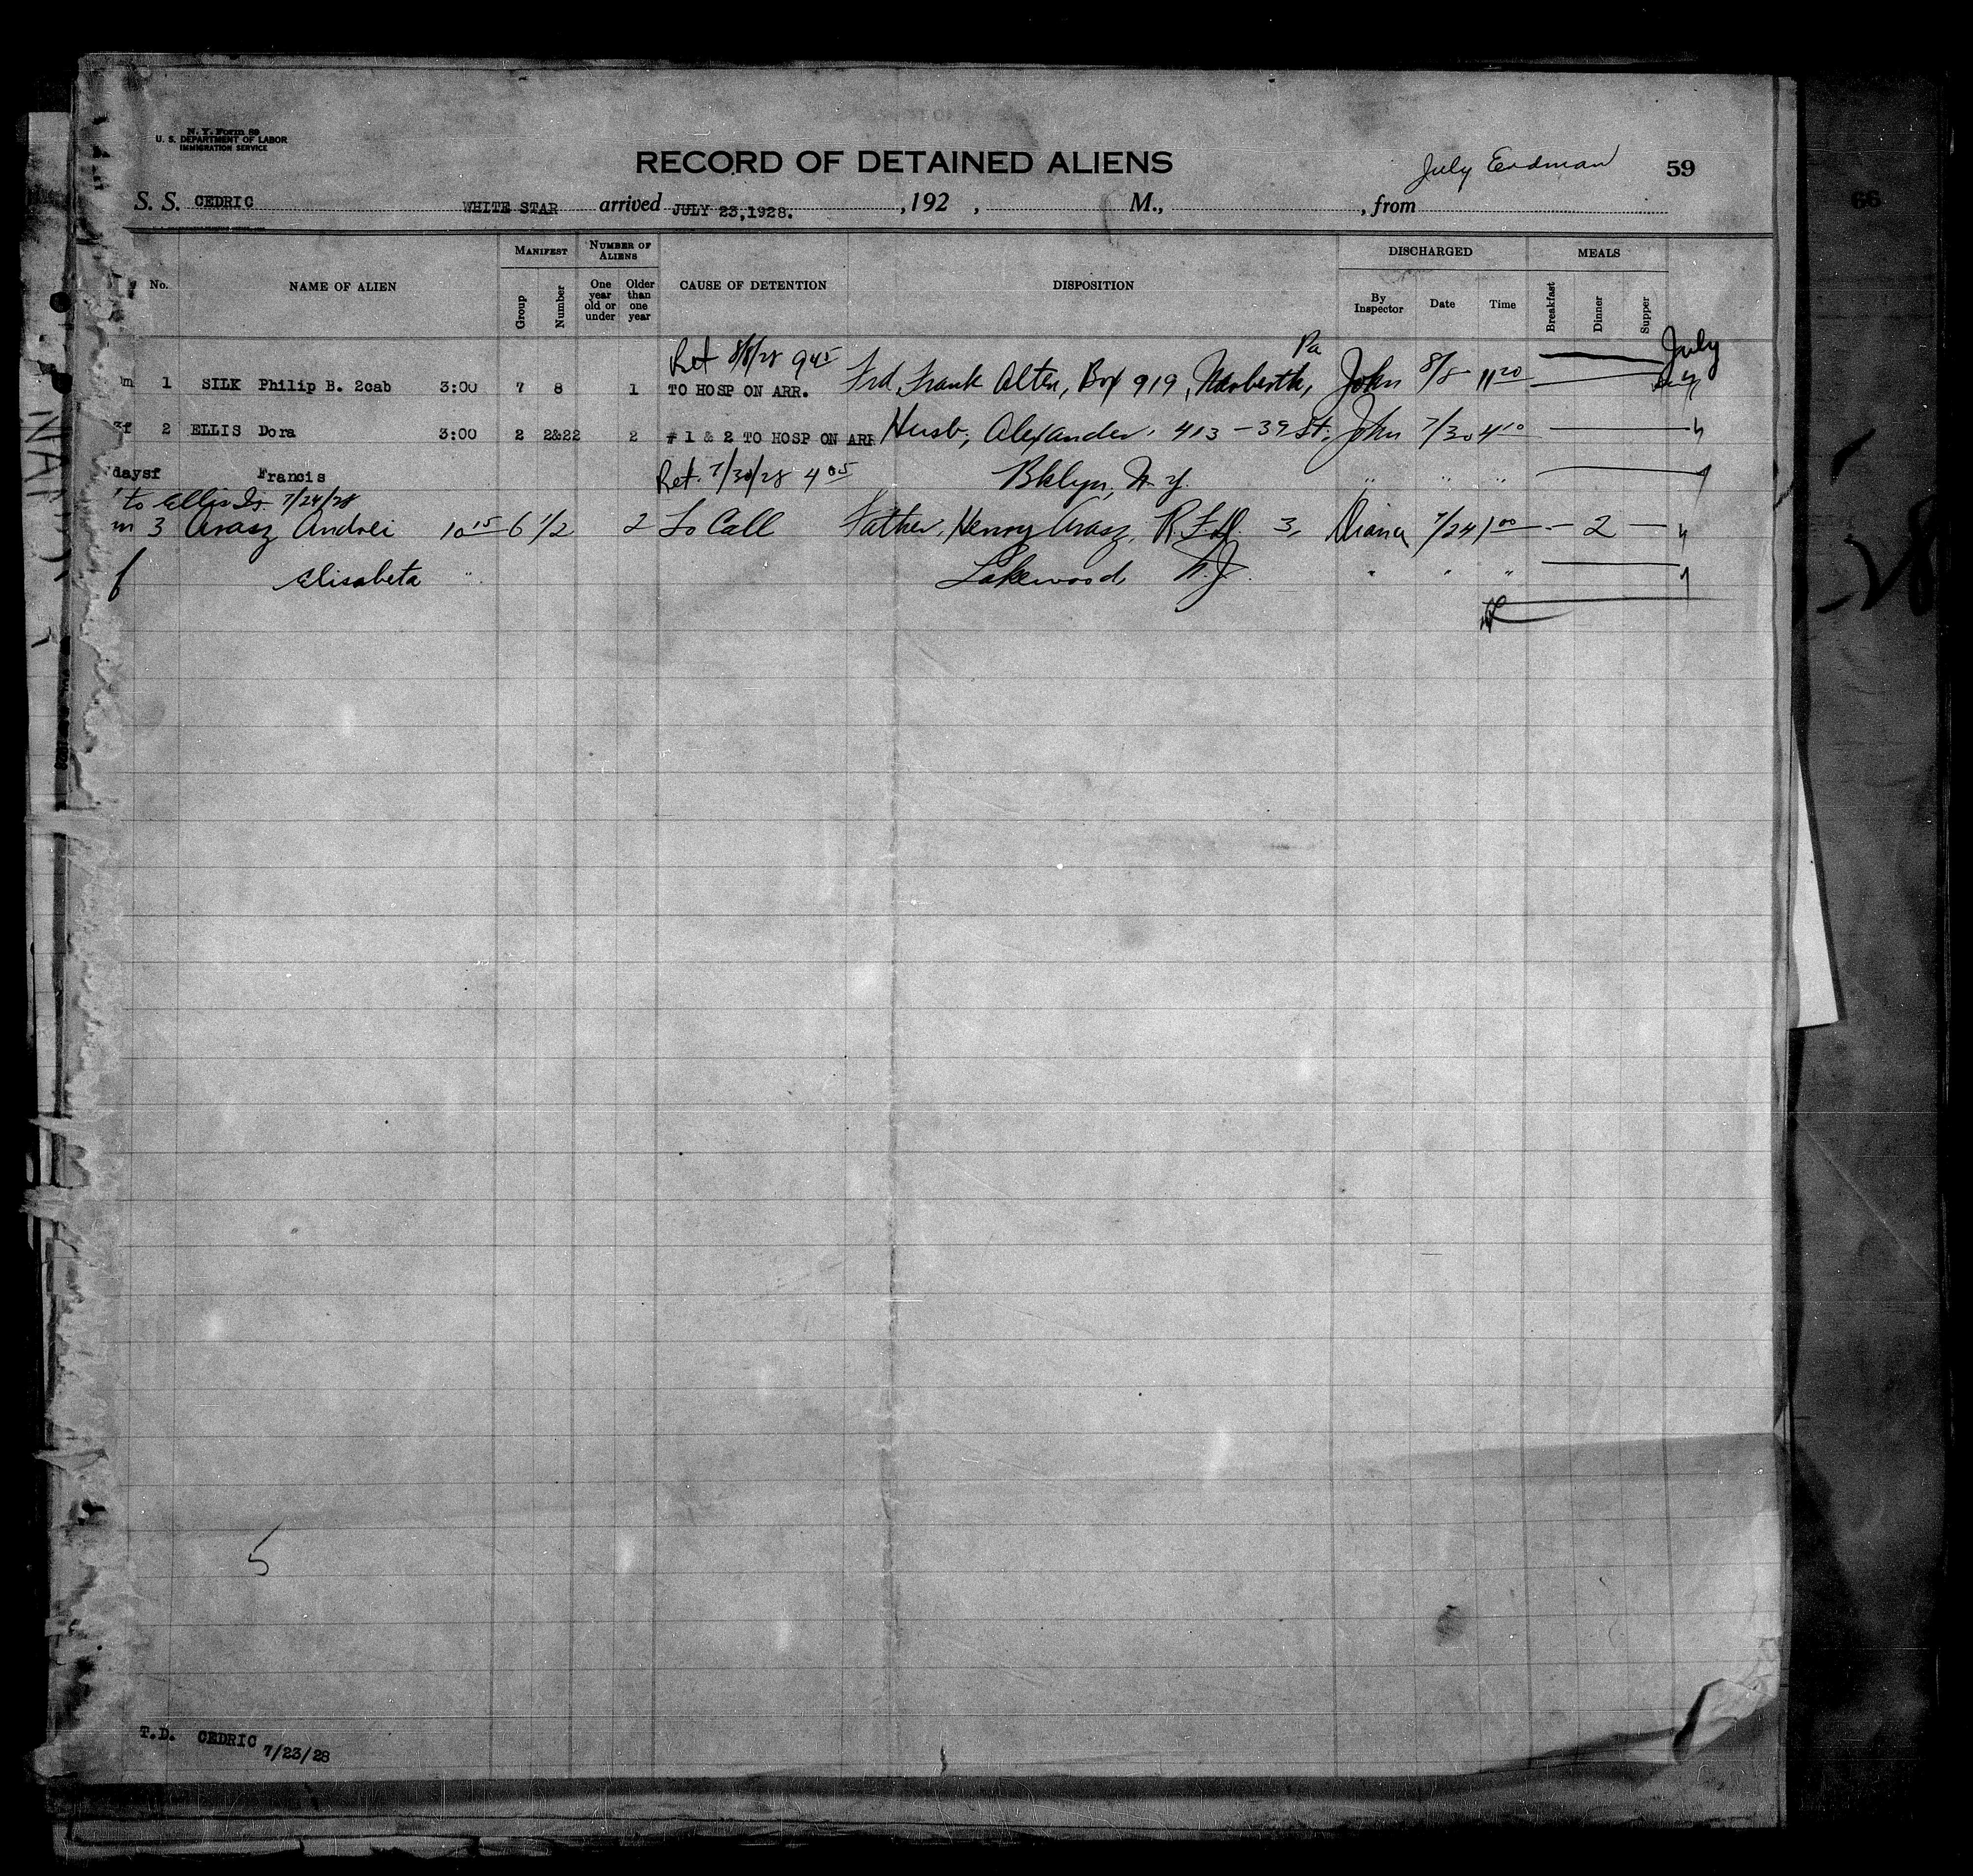 N. Y. Form 89
U. S. DEPARTMENT OF LABOR
IMMIGRATION SERVICE
RECORD OF DETAINED ALIENS
July Erdman
59
66
S. S. CEDRIC WHITE STAR arrived JULY 23,1928. ,192 , M., , from
No. NAME OF ALIEN MANIFEST NUMBER OF ALIENS CAUSE OF DETENTION DISPOSITION DISCHARGED MEALS
Group Number One year old or under Older than one year By Inspector Date Time Breakfast Dinner Supper
Ret 8/8/28 9 45 Pa July
m 1 SILK Philip B. 2cab 3:00 7 8 1 TO HOSP ON ARR. Frd, Frank Alten, Box 919, Narberth, John 8/8 11 20
f 2 ELLIS Dora 3:00 2 2&22 2 # 1 & 2 TO HOSP ON ARR Husb, Alexander, 413 - 39 St. John 7/30 4 10
daysf Francis Ret. 7/30/28 4 05 Bklyn, N.Y. " " "
to Ellis Is. 7/24/28
m 3 Arasz Andrei 10 15 6 1/2 2 To Call Father, Henry Arasz, R.F.D. 3, 7/24 1 00 - 2 -
f Elisabeta " Lakewood, N.J. " " "
5
T.D. CEDRIC 7/23/28